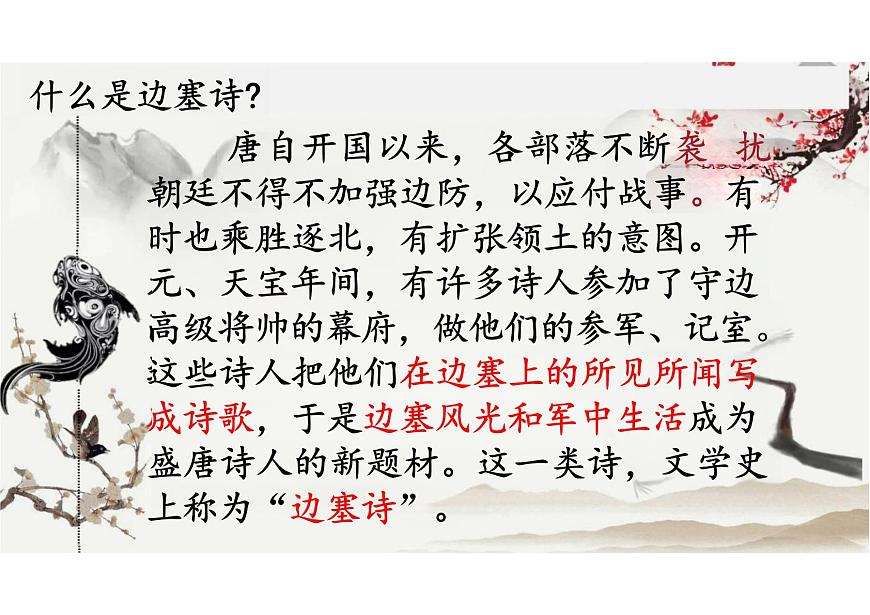 什么是边塞诗?
唐自开国以来，各部落不断袭 扰
朝廷不得不加强边防，以应付战事。有
时也乘胜逐北，有扩张领土的意图。开
元、天宝年间，有许多诗人参加了守边
高级将帅的幕府，做他们的参军、记室。
这些诗人把他们在边塞上的所见所闻写
成诗歌，于是边塞风光和军中生活成为
盛唐诗人的新题材。这一类诗，文学史
上称为“边塞诗”。